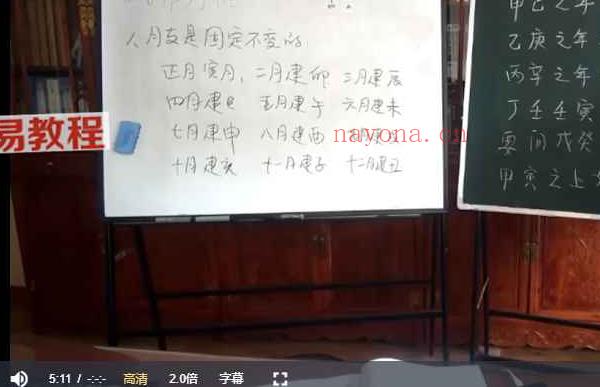 人月支是固定不变的:
正月寅月、二月建卯 三月建辰
四月建巳 五月建午 六月建未
七月建申 八月建酉
十月建亥 十一月建子 十二月建丑
甲己之年
乙庚之年
丙辛之年
丁壬壬寅
要问戊癸
甲寅之上
易教程
nayona.cn
5:11 / -:-:- 高清 2.0倍 字幕